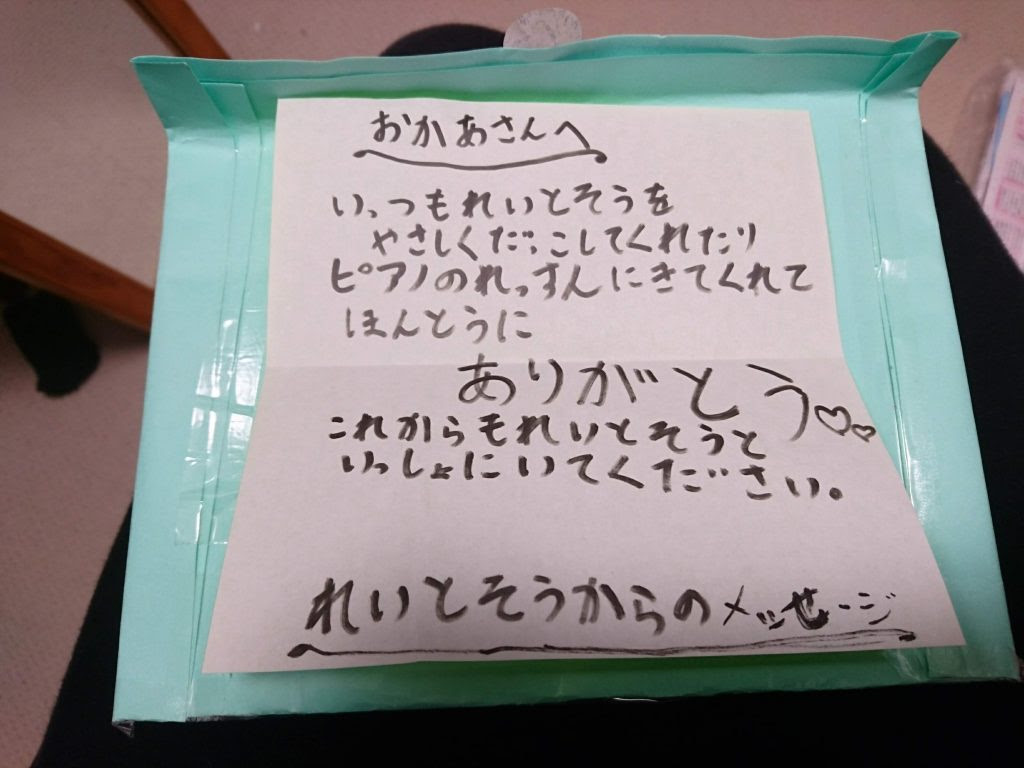 おかあさんへ
いつもれいとそうを
やさしくだっこしてくれたり
ピアノのれっすんにきてくれて
ほんとうに
ありがとう♡♡
これからもれいとそうと
いっしょにいてください。
れいとそうからのメッセージ